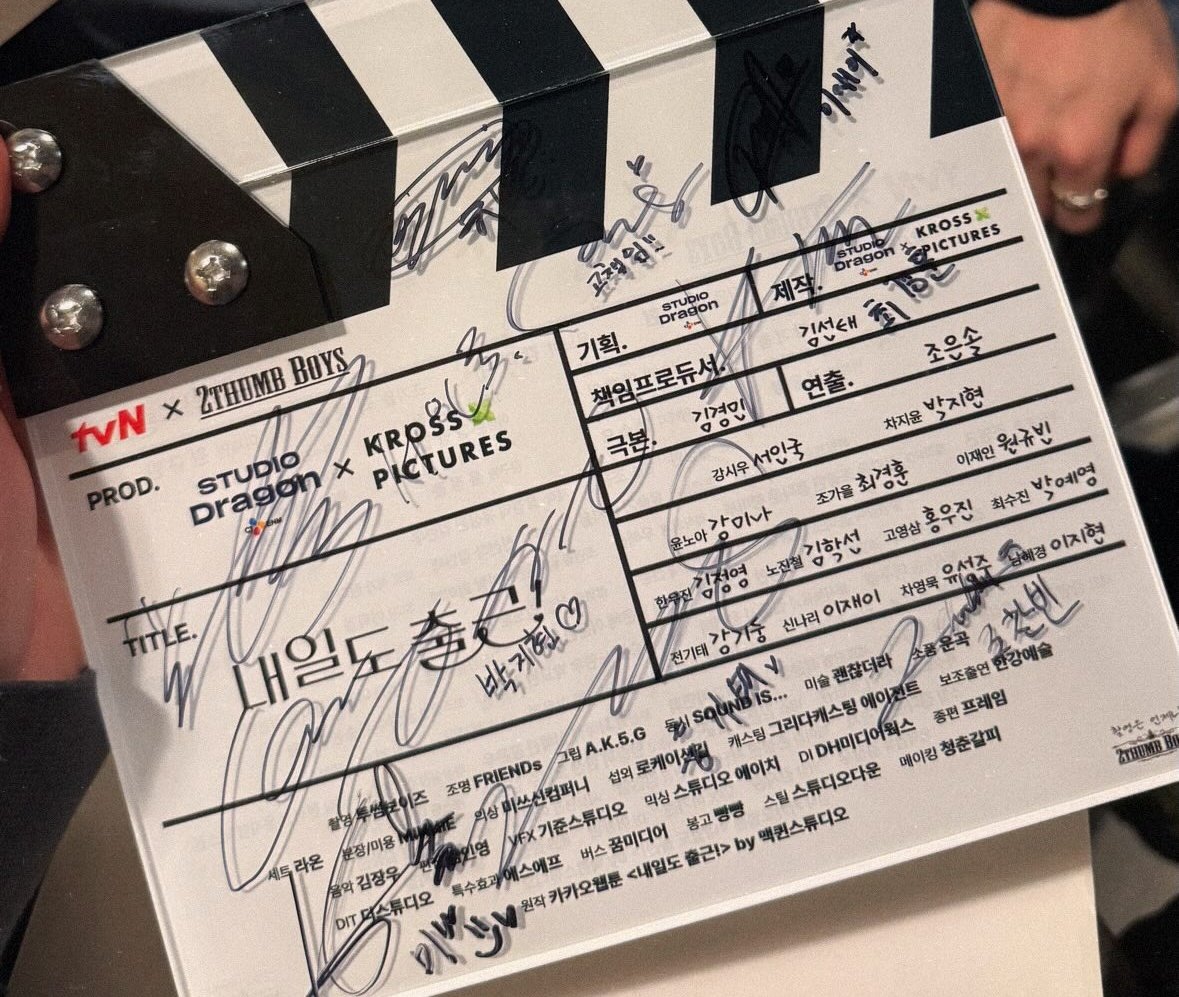 이세이
고정임!!
tvN × 2THUMB BOYS
PROD. STUDIO Dragon CJ ENM × KROSS PICTURES
TITLE. 내일도 출근!
박지현♡
기획. STUDIO Dragon
제작. STUDIO Dragon × KROSS PICTURES
책임프로듀서. 김선태
극본. 김경민
연출. 조은솔
강시우 서인국 차지윤 박지현
윤노아 강미나 조가을 최경훈 이재인 원규빈
한우진 김정영 노진철 김학선 고영삼 홍우진 최수진 박예영
전기태 강기둥 신나리 이재이 차영묵 유성주 남혜경 이지현
촬영 투썸보이즈 조명 FRIENDs 그립 A.K.5.G 동시 SOUND IS... 미술 괜찮더라 소품 운곡
세트 라온 분장/미용 의상 미쓰신컴퍼니 섭외 로케이션 캐스팅 그리다캐스팅 에이전트 보조출연 한강예술
음악 김장우 편집 VFX 기준스튜디오 믹싱 스튜디오 에이치 DI DH미디어웍스 종편 프레임
DIT 더스튜디오 특수효과 에스에프 버스 꿈미디어 봉고 빵빵 스틸 스튜디오다운 메이킹 청춘갈피
원작 카카오웹툰 <내일도 출근!> by 맥퀸스튜디오
2THUMB BO